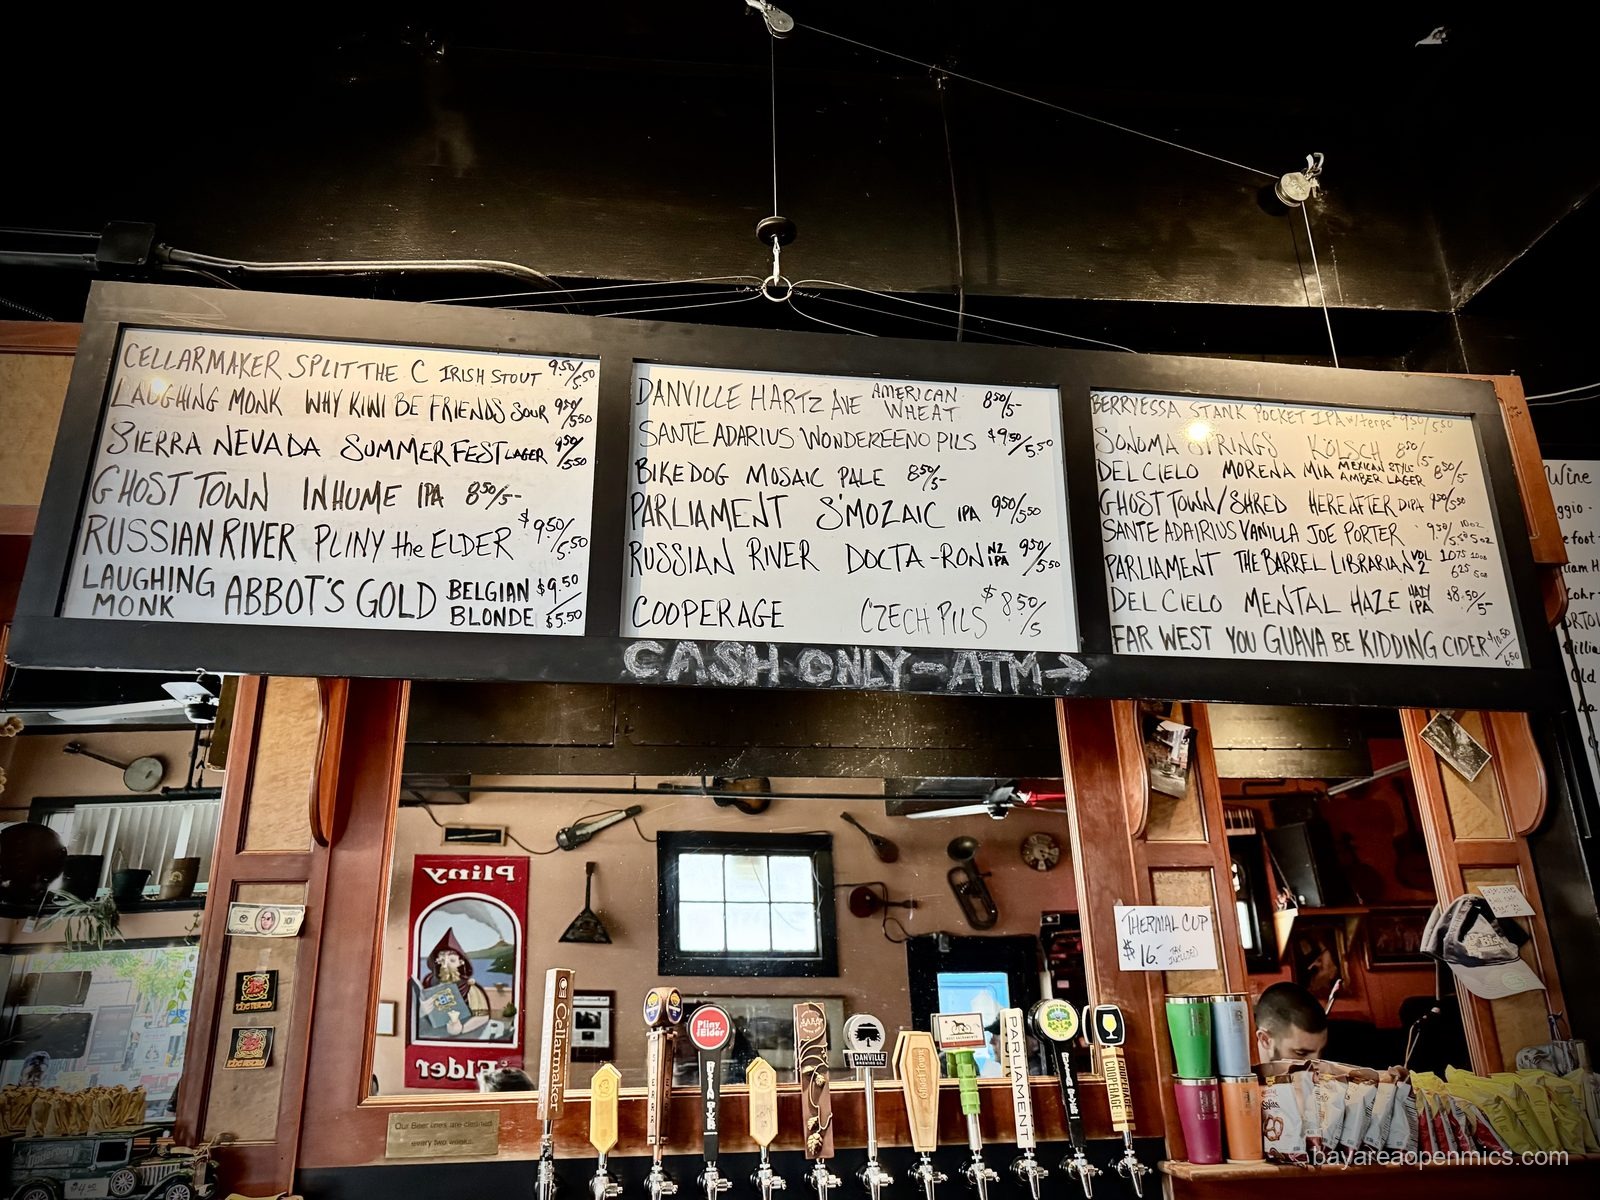 CELLARMAKER SPLIT THE C IRISH STOUT 9.50/5.50
LAUGHING MONK WHY KIWI BE FRIENDS SOUR 9.50/5.50
SIERRA NEVADA SUMMERFEST LAGER 9.50/5.50
GHOST TOWN INHUME IPA 8.50/5-
RUSSIAN RIVER PLINY the ELDER $9.50/5.50
LAUGHING MONK ABBOT'S GOLD BELGIAN BLONDE $9.50/$5.50
DANVILLE HARTZ AVE AMERICAN WHEAT 8.50/5-
SANTE ADARIUS WONDEREENO PILS $9.50/5.50
BIKE DOG MOSAIC PALE 8.50/5-
PARLIAMENT S'MOZAIC IPA 9.50/5.50
RUSSIAN RIVER DOCTA-RON NZ IPA 9.50/5.50
COOPERAGE CZECH PILS $8.50/5
BERRYESSA STANK POCKET IPA w/terps $9.50/5.50
SONOMA STRINGS KÖLSCH 8.50/5-
DEL CIELO MORENA MIA MEXICAN STYLE AMBER LAGER 8.50/5-
GHOST TOWN/SHRED HEREAFTER DIPA 9.50/5.50
SANTE ADAIRIUS VANILLA JOE PORTER 9.50 10oz/5.50 5oz
PARLIAMENT THE BARREL LIBRARIAN VOL 2 10.75 10oz 6.25 5oz
DEL CIELO MENTAL HAZE HAZY IPA $8.50/5-
FAR WEST YOU GUAVA BE KIDDING CIDER $10.50/6.50
CASH ONLY - ATM →
Wine
Old
Pliny
Elder
THERMAL CUP
$16.- TAX INCLUDED
Cellarmaker
SIERRA
Pliny the Elder
DANVILLE
BREWING CO.
Ghost Town
PARLIAMENT
COOPERAGE
Our Beer lines are cleaned
every two weeks.
bayareaopenmics.com